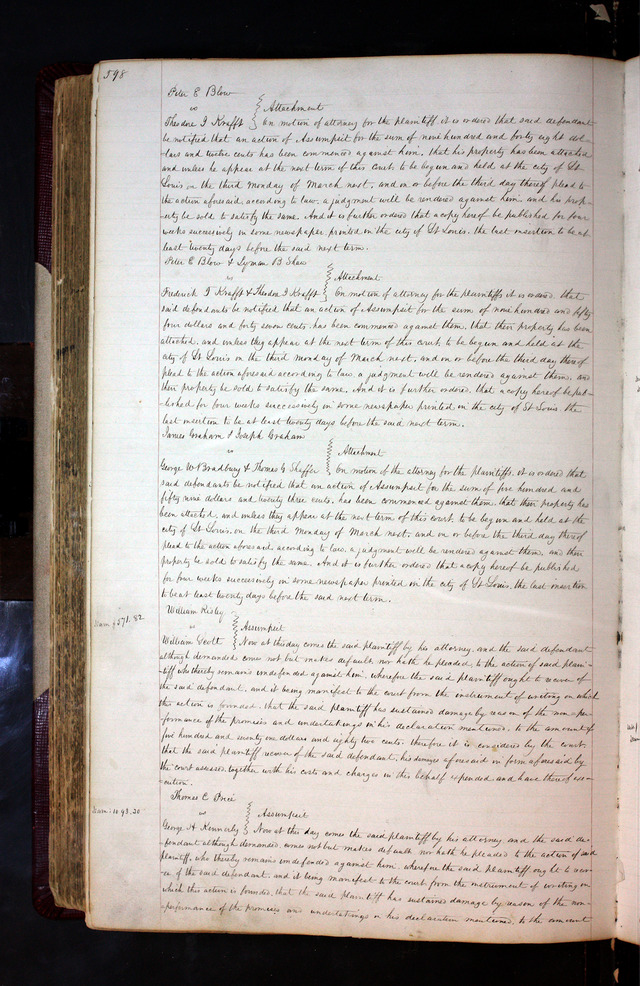 598
Peter E Blow
vs } Attachment
Theodore I Krafft } On motion of attorney for the plaintiff, it is ordered that said defendant
be notified that an action of Assumpsit for the sum of nine hundred and forty eight dol-
lars and twelve cents has been commenced against him, that his property has been attached
and unless he appear at the next term of this Court, to be begun and held at the city of St
Louis on the third Monday of March next, and on or before the third day thereof plead to
the action aforesaid according to law, a judgment will be rendered against him and his prop-
erty be sold to satisfy the same. And it is further ordered that a copy hereof be published for four
weeks successively in some newspaper printed in the city of St Louis, the last insertion to be at
least twenty days before the said next term.
Peter E Blow & Lyman B Shaw
vs } Attachment
Frederick T Krafft & Theodore I Krafft } On motion of attorney for the plaintiffs it is ordered that
said defendants be notified that an action of Assumpsit for the sum of nine hundred and fifty
four dollars and forty seven cents, has been commenced against them, that their property has been
attached, and unless they appear at the next term of this court, to be begun and held at the
city of St Louis on the third Monday of March next, and on or before the third day thereof
plead to the action aforesaid according to law, a judgment will be rendered against them, and
their property be sold to satisfy the same. And it is further ordered, that a copy hereof be pub-
lished for four weeks successively in some newspaper printed in the city of St Louis the
last insertion to be at least twenty days before the said next term.
James Graham & Joseph Graham
vs } Attachment
George W Bradbury & Thomas G Shaffer } On motion of the attorney for the plaintiffs, it is ordered that
said defendants be notified that an action of Assumpsit for the sum of five hundred and
fifty nine dollars and twenty three cents, has been commenced against them, that their property has
been attached, and unless they appear at the next term of this court to be begun and held at the
city of St Louis, on the third Monday of March next, and on or before the third day thereof
plead to the action aforesaid, according to law, a judgment will be rendered against them, and their
property be sold to satisfy the same. And it is further ordered that a copy hereof be published
for four weeks successively in some newspaper printed in the city of St Louis, the last insertion
to be at least twenty days before the said next term.
William Risley
Dam: $571.82
vs } Assumpsit
William Scott } Now at this day comes the said plaintiff by his attorney, and the said defendant
although demanded comes not but makes default, nor hath he pleaded to the action of said plain-
tiff who thereby remains undefended against him, wherefore the said plaintiff ought to recover of
the said defendant, and it being manifest to the court from the instrument of writing on which
this action is founded, that the said plaintiff has sustained damage by reason of the non-per-
formance of the promises and undertakings in his declaration mentioned, to the amount of
five hundred and seventy one dollars and eighty two cents, therefore it is considered by the court,
that the said plaintiff recover of the said defendant, his damages aforesaid in form aforesaid by
the court assessed, together with his costs and charges in this behalf expended and have thereof exe-
cution.
Thomas C Price
Dam: 1098.20
vs } Assumpsit
George H Kennerly } Now at this day comes the said plaintiff by his attorney and the said de-
fendant although demanded, comes not but makes default nor hath he pleaded to the action of said
plaintiff, who thereby remains undefended against him, wherefore the said plaintiff ought to recov-
er of the said defendant, and it being manifest to the court from the instrument of writing on
which this action is founded, that the said plaintiff has sustained damage by reason of the non-
performance of the promises and undertakings in his declaration mentioned, to the amount